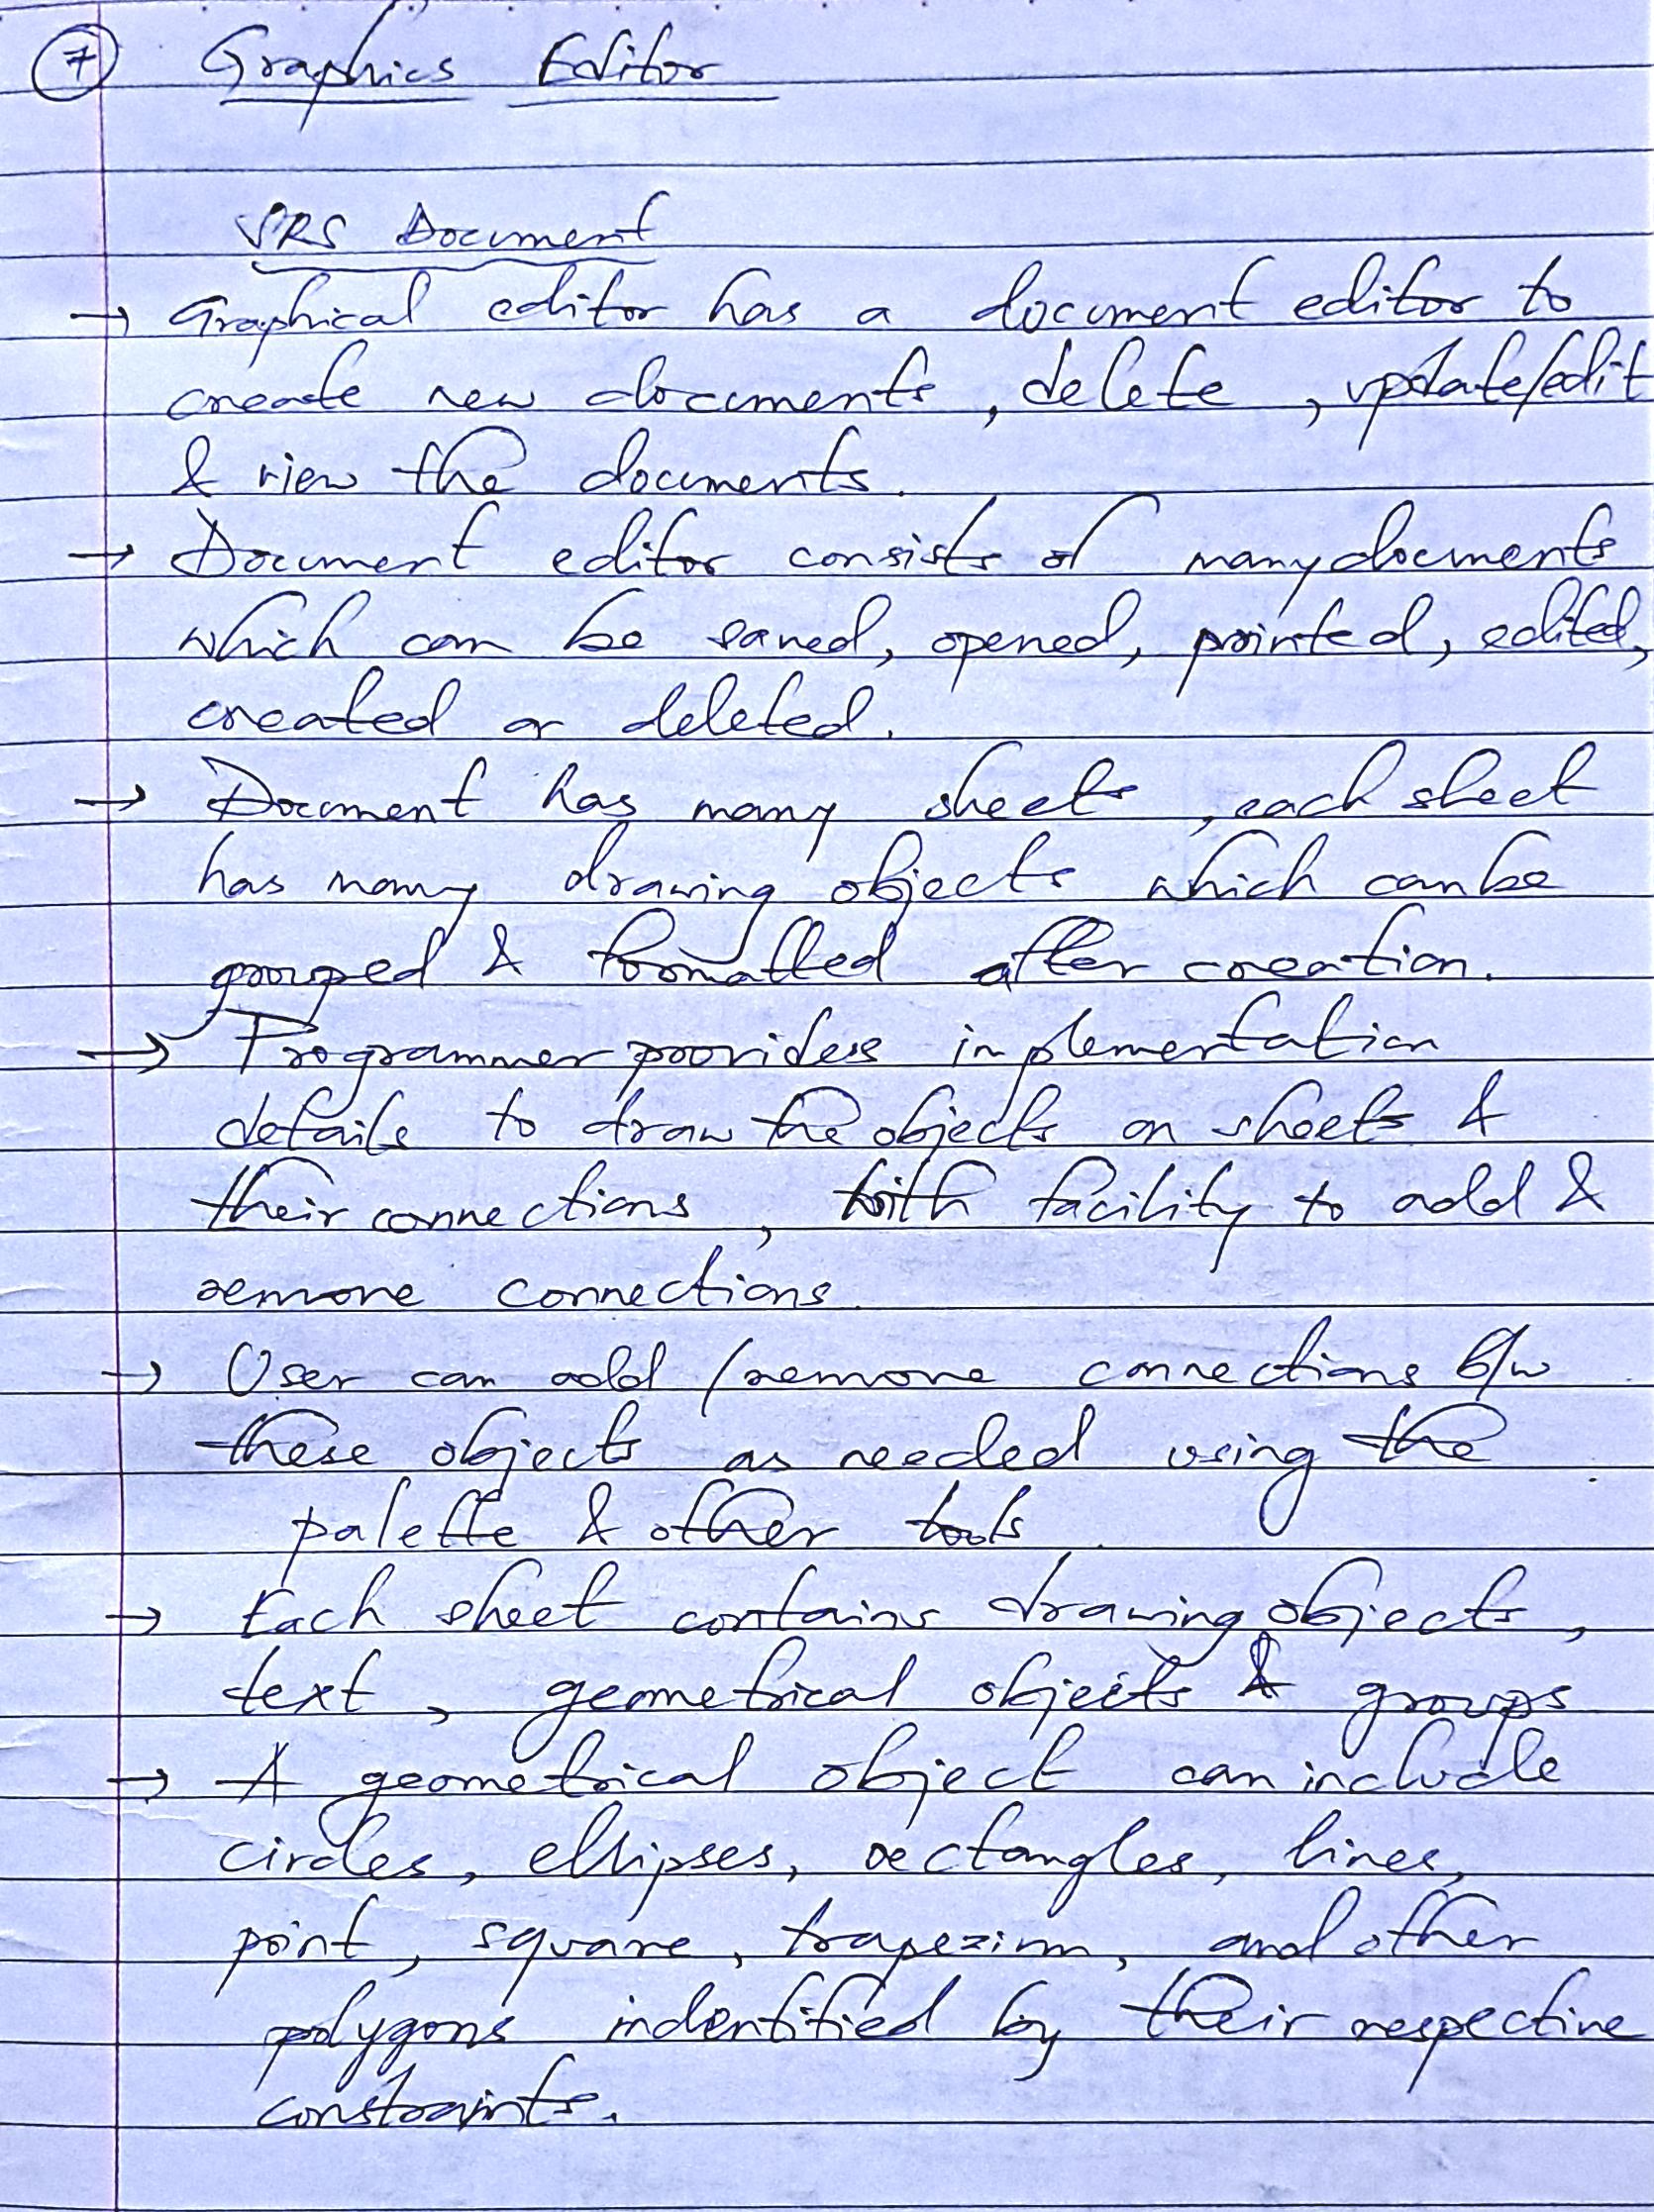 7 Graphics Editor
SRS Document
→ Graphical editor has a document editor to
create new documents, delete, update/edit
& view the documents.
→ Document editor consists of many documents
which can be saved, opened, printed, edited,
created or deleted.
→ Document has many sheets, each sheet
has many drawing objects which can be
grouped & formatted after creation.
→ Programmer provides implementation
details to draw the objects on sheets &
their connections, with facility to add &
remove connections.
→ User can add /remove connections b/w
these objects as needed using the
palette & other tools.
→ Each sheet contains drawing objects,
text, geometrical objects & groups
→ A geometrical object can include
circles, ellipses, rectangles, lines,
point, square, trapezium, and other
polygons indentified by their respective
constraints.